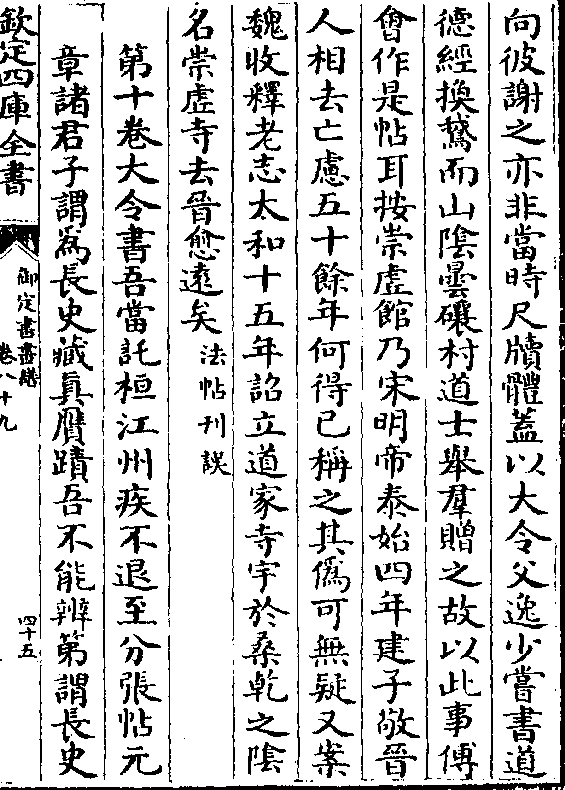 向彼謝之亦非當時尺牘體蓋以大令父逸少嘗書道
德經換鵞而山陰曇礲村道士舉羣贈之故以此事傅
會作是帖耳按崇虛館乃宋明帝泰始四年建子敬晉
人相去亡慮五十餘年何得已稱之其僞可無疑又案
魏收釋老志太和十五年詔立道家寺宇於桑乾之陰
名崇虛寺去晉愈遠矣法帖刊誤
第十卷大令書吾當託桓江州疾不退至分張帖元
章諸君子謂為長史藏真贋蹟吾不能辨第謂長史
欽定四庫全書
御定書畫譜
卷八十九
四十五